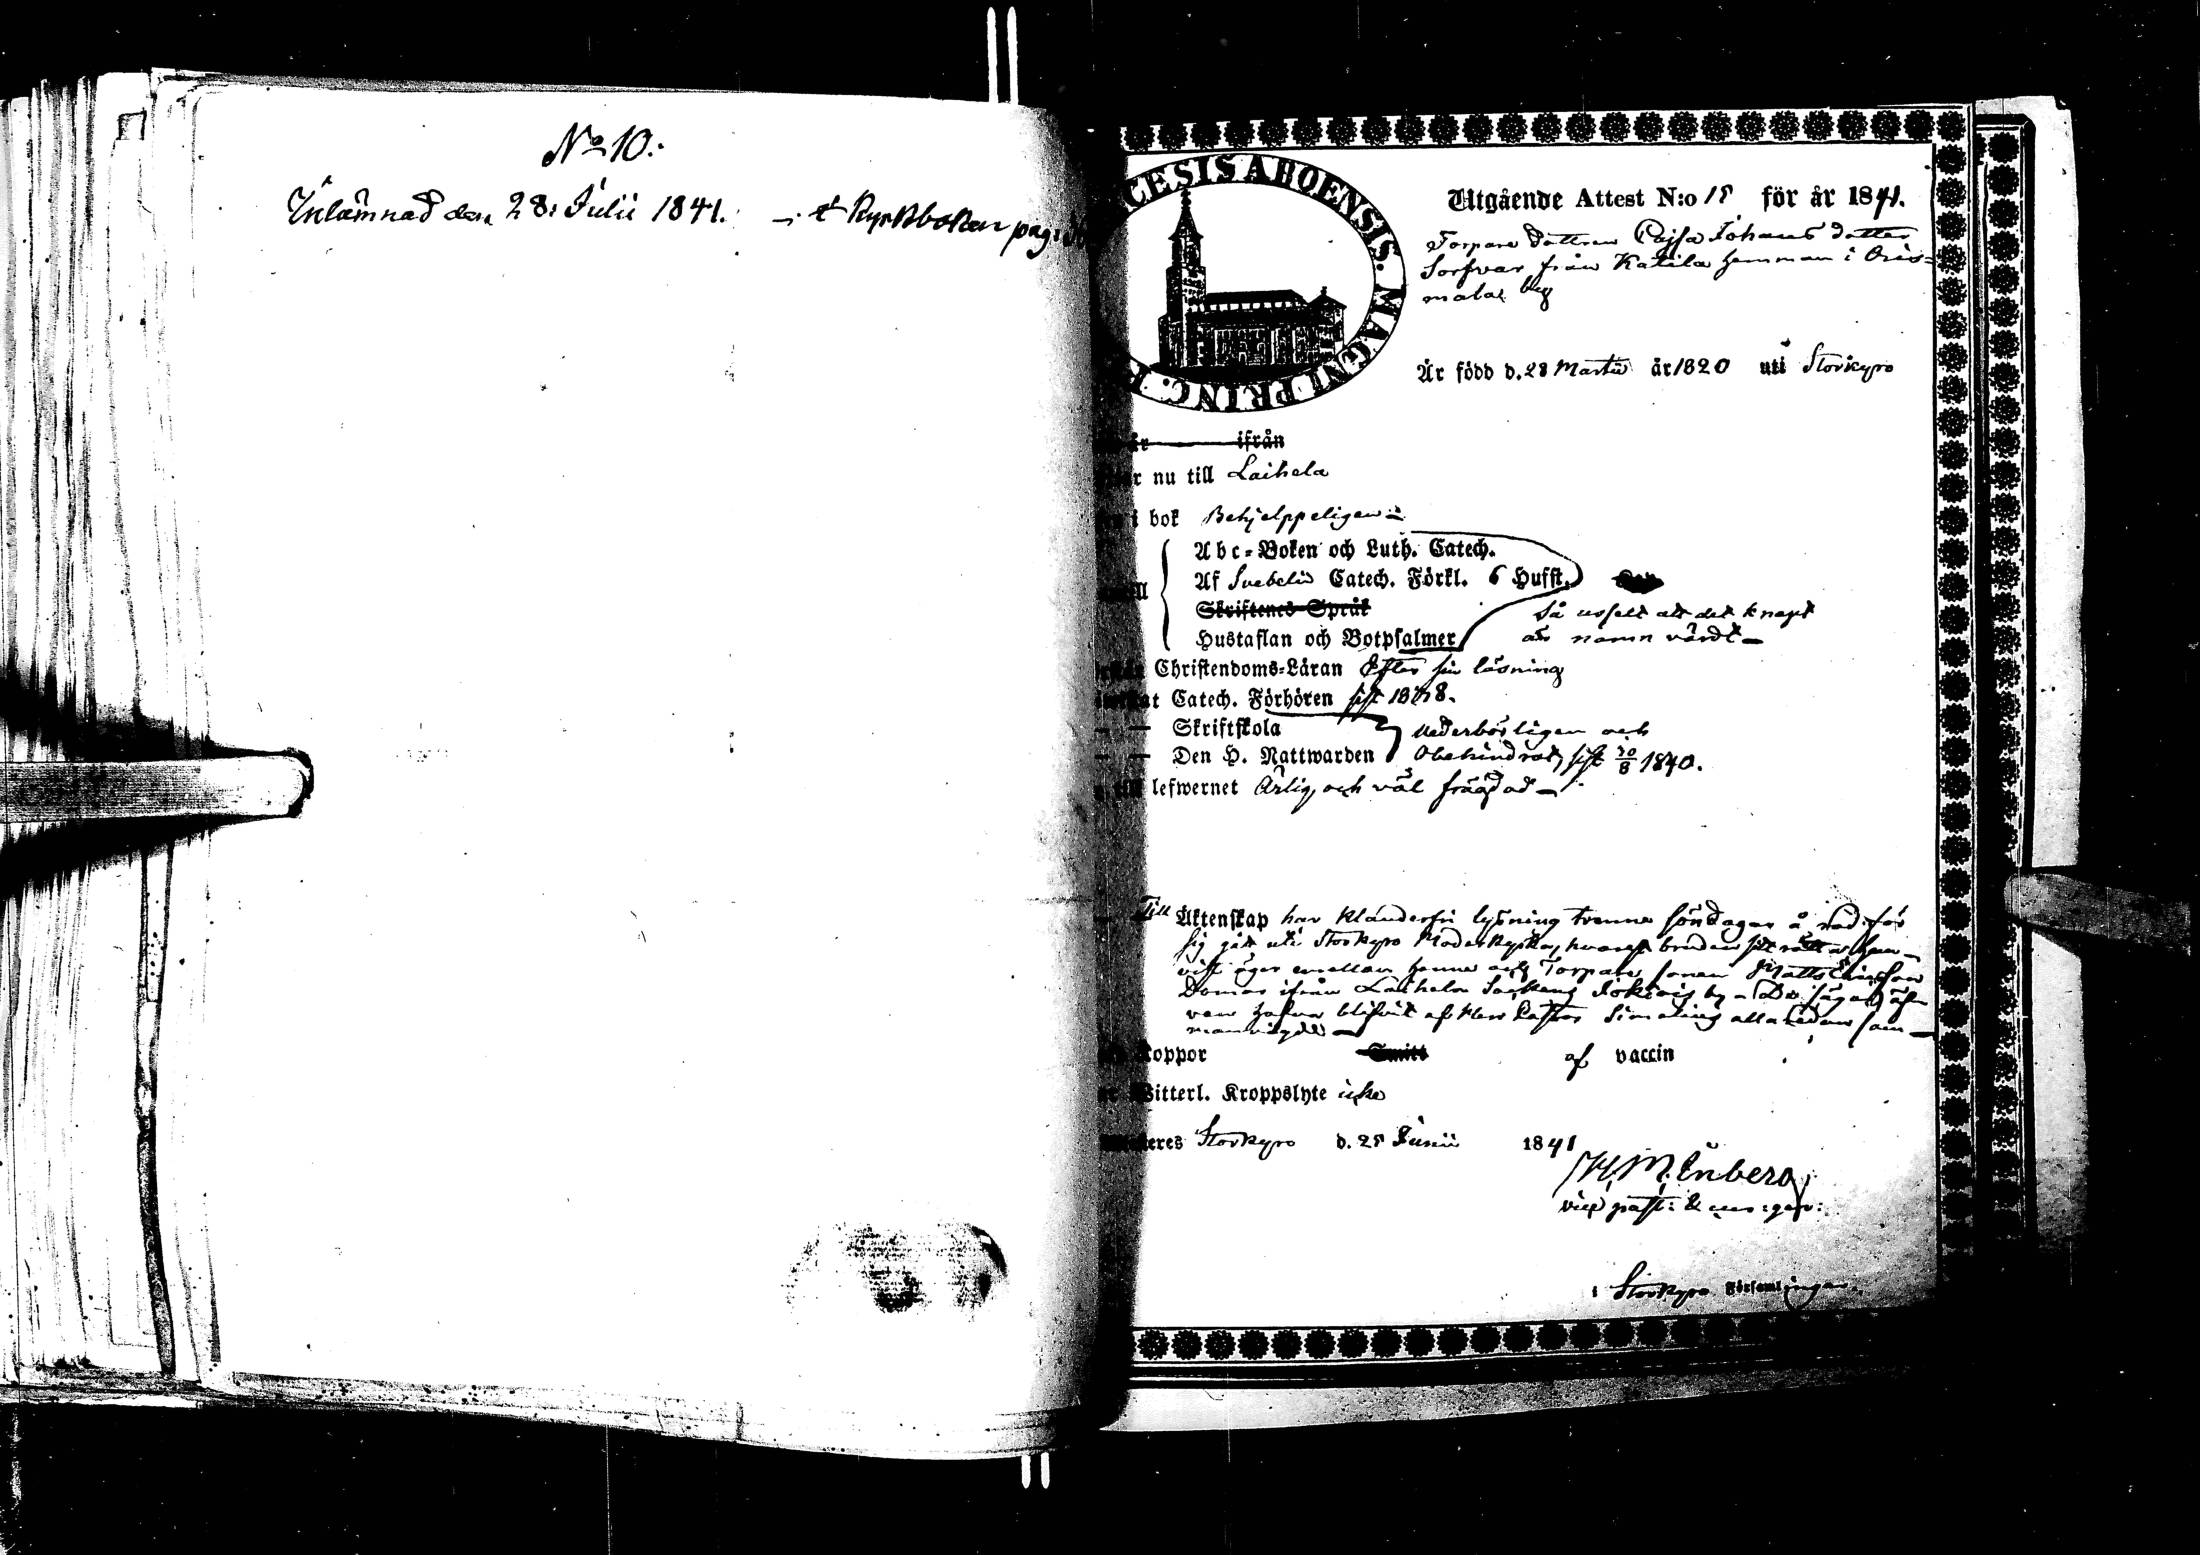 No 10.
Inlämnad den 28: Julii 1841. — Kyrkboken pag:
CESIS ABOENSIS. MAGNI PRINC.
Utgående Attest N:o 18 för år 1841.
Torpare dottren Cajsa Johans dotter
Sorfvar från Katila hemman i Oris=
mala by
Är född d. 28 Martii år 1820 uti Storkyro
ifrån
nu till Laihela
i bok Behjelppeligen
Abc=Boken och Luth. Catech.
Af Svebelii Catech. Förkl. 6 Hufst.
Skriftenes Språk
Hustaflan och Botpsalmer
Så uselt att det knapt
är namn värdt —
Christendoms=Läran Efter sin läsning
Catech. Förhören sist 1838.
— — Skriftskola
— — Den H. Nattwarden
vederbörligen och
Obehindrad, sist 30/8 1840.
till lefwernet Ärlig och väl frägdad —
Till Äktenskap har klanderfri lysning trenne söndagar å rad för
sig gått uti Storkyro Moderkyrka, hvarest bruden sitt rätta hem=
vist äger emellan henne och Torpare sonen Matts
ifrån Laihela Sockens Jokivis by – De säga äf=
ven hafva blifvit af Herr Pastor Simeling allaredan sam=
manvigde —
Koppor Smitt af vaccin
Witterl. Kroppslyte icke
Storkyro d. 28 Junii 1841
M. Enberg
vice past:
i Storkyro Församlingar.